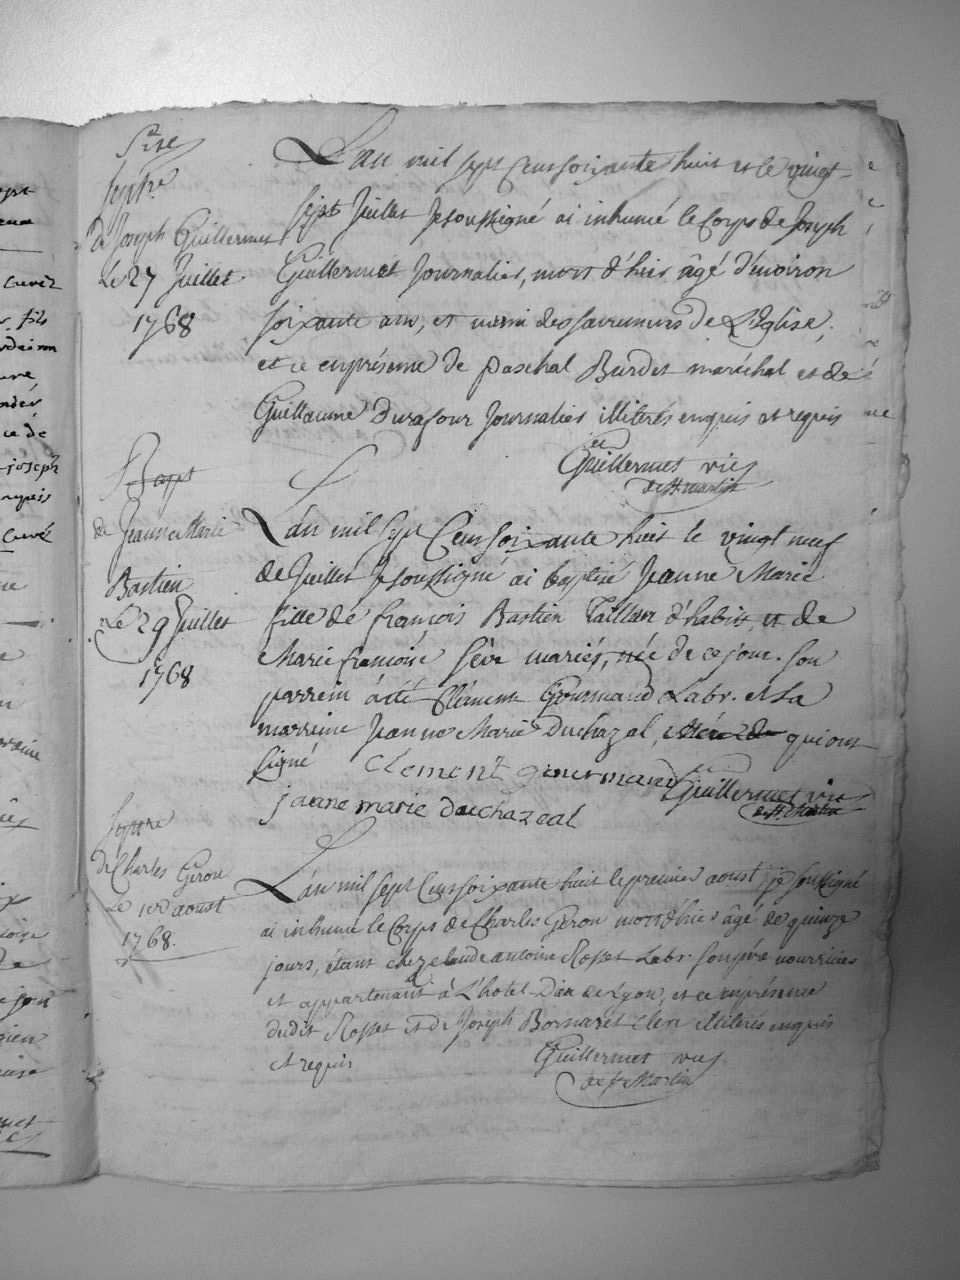 Sepre
de Joseph Guillermet
Le 27 Juillet
1768
L'an mil sept Cent soixante huit et le vingt-
sept Juillet Je soussigné ai inhumé le Corps de Joseph
Guillermet Journalier, mort d'hier âgé d'environ
soixante ans, et muni des sacremens de L'Eglise,
et ce en présence de Paschal Burdet maréchal et de
Guillaume Durafour Journalier illitérés enquis et requis
Guillermet vic
de St martin
Bapt
de Jeanne Marie
Bastien
Le 29 Juillet
1768
L'an mil sept Cent soixante huit le vingt neuf
de Juillet Je soussigné ai baptisé Jeanne Marie
fille de françois Bastien Tailleur d'habits, et de
Marie françoise Sève mariés, née de ce jour. Son
parrein a été Clément Gourmand Labr. et sa
marreine Jeanne Marie Duchazal, qui ont
signé clement gourmand Guillermet vic
jeanne marie duchazeal de St Martin
Sepre
de Charles Giron
Le 1er aoust
1768.
L'an mil sept Cent soixante huit le premier aoust je soussigné
ai inhumé le Corps de Charles Giron mort d'hier âgé de quinze
jours, étant chez claude antoine Rosset Labr. son père nourricier
et appartenant à L'hotel-Dieu de Lyon, et ce en présence
dudit Rosset et de Joseph Bornaret Clerc illitérés enquis
et requis Guillermet vic
de St Martin